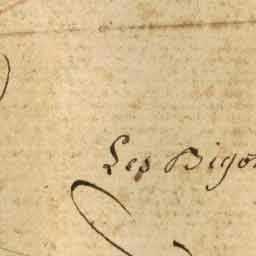 Les Bigo